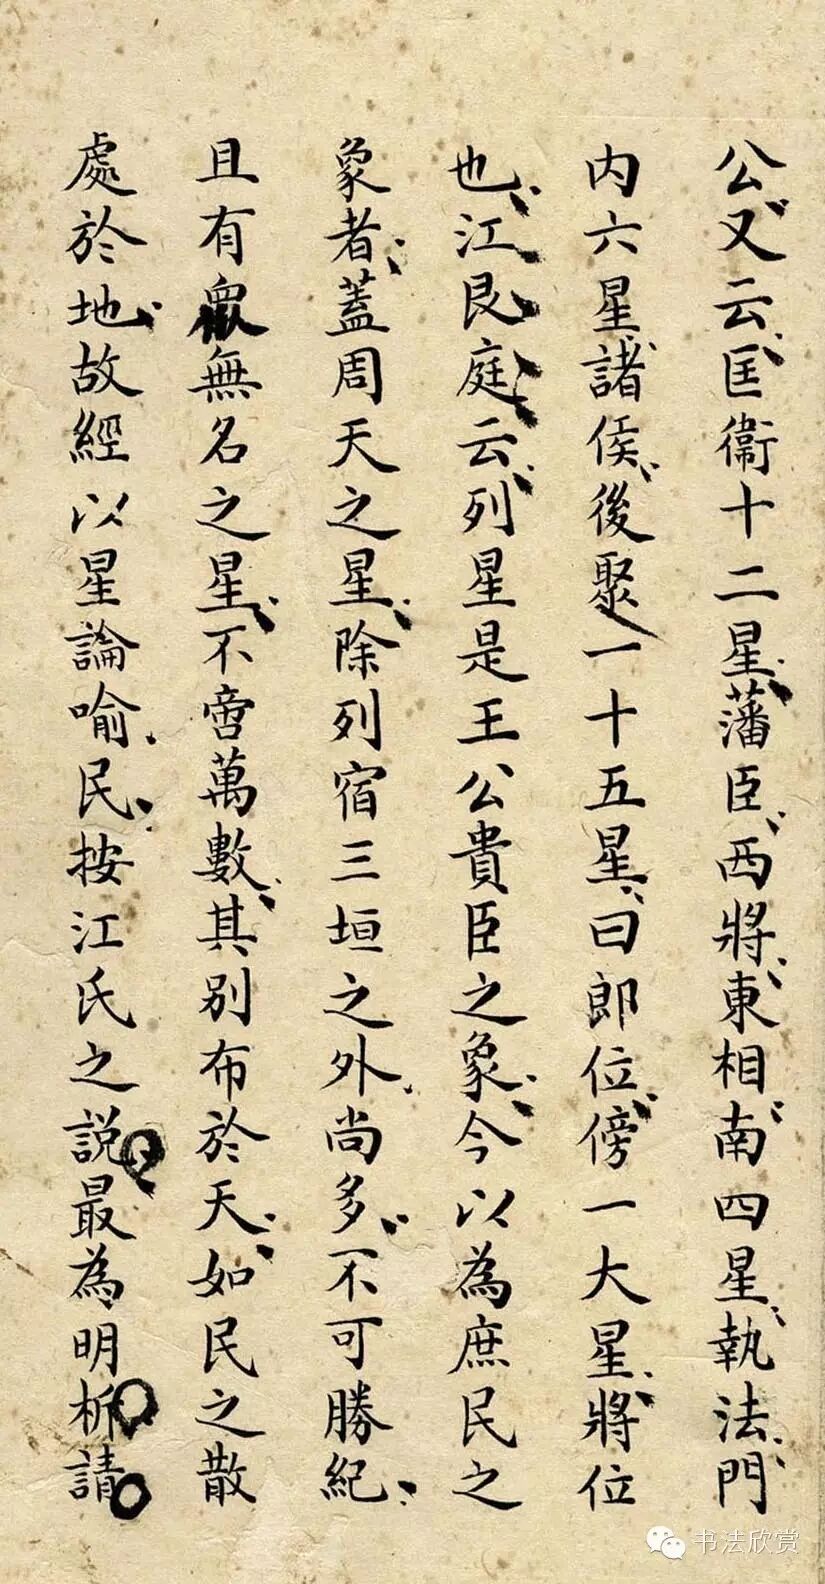 公又云匡衞十二星藩臣西將東相南四星執法門
内六星諸侯後聚一十五星曰郎位傍一大星將位
也江艮庭云列星是王公貴臣之象今以為庶民之
象者蓋周天之星除列宿三垣之外尚多不可勝紀
且有衆無名之星不啻萬數其別布於天如民之散
處於地故經以星論喻民按江氏之説最為明析請
书法欣赏